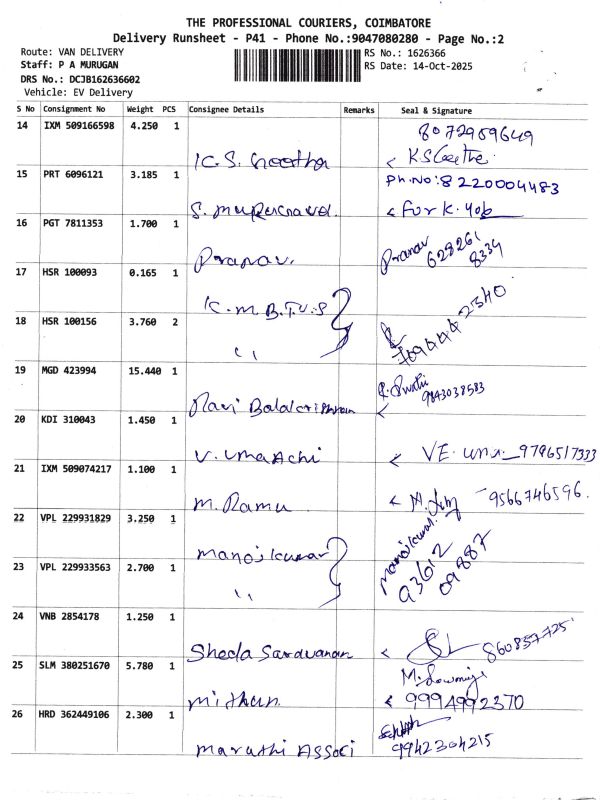 THE PROFESSIONAL COURIERS, COIMBATORE
Delivery Runsheet - P41 - Phone No.:9047080280 - Page No.:2
Route: VAN DELIVERY
Staff: P A MURUGAN
DRS No.: DCJB162636602
Vehicle: EV Delivery
RS No.: 1626366
RS Date: 14-Oct-2025
S No Consignment No Weight PCS Consignee Details Remarks Seal & Signature
14 IXM 509166598 4.250 1
8072959649
K.S. Geetha
< K S Geetha
15 PRT 6096121 3.185 1
Ph.No: 8220004483
S. Murugavel. < For K.
16 PGT 7811353 1.700 1
Pranav. Pranav 628261
8334
17 HSR 100093 0.165 1
K.M.B.T.V.S
18 HSR 100156 3.760 2
19 MGD 423994 15.440 1
9843038583
Ravi Balakrishnan <
20 KDI 310043 1.450 1
V. Umaachi < VE. uma 9796517333
21 IXM 509074217 1.100 1
M. Ramu < 9566746596.
22 VPL 229931829 3.250 1
Manojkumar Manojkumar
93612
09887
23 VPL 229933563 2.700 1
24 VNB 2854178 1.250 1
Sheela Saravanan <
25 SLM 380251670 5.780 1
M. Sowmiya
Mithun < 9994992370
26 HRD 362449106 2.300 1
Maruthi Associ 9942304215